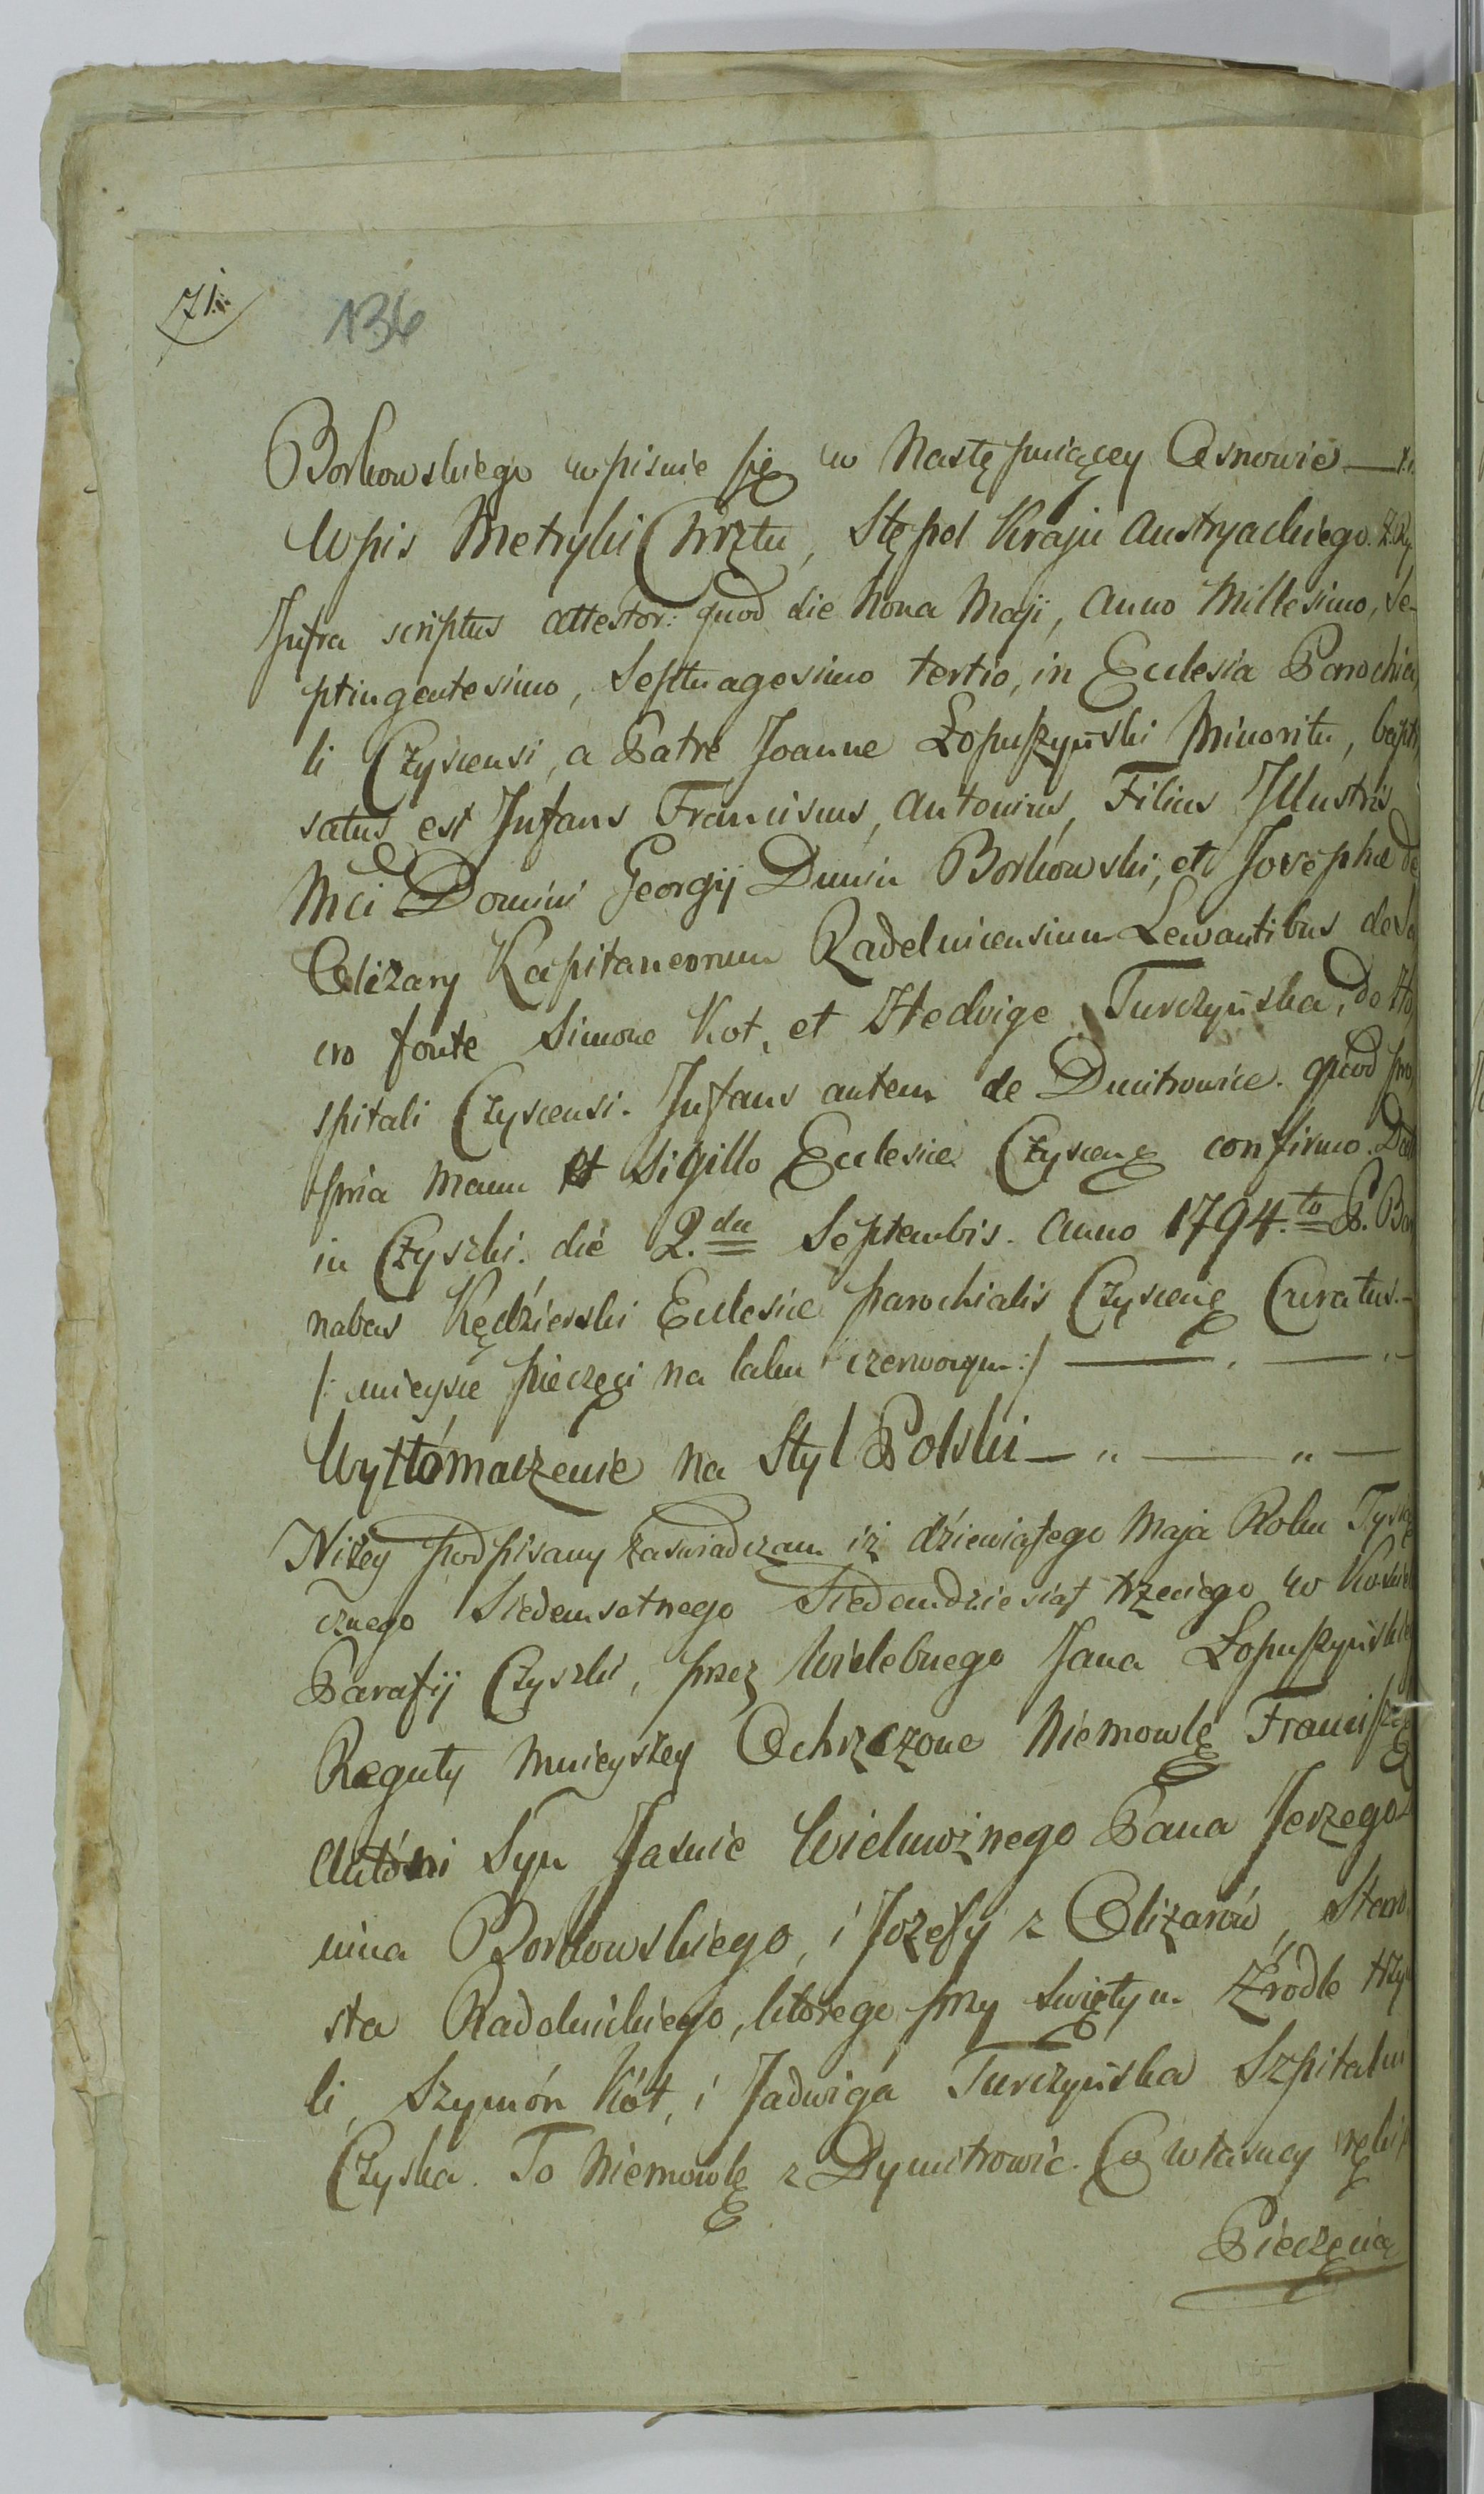 71.
136
Borkowskiego wpisuie się w Następuiącey Osnowie
Wpis Metryki Chrztu, Stępel Kraju Austryackiego.
Infra scriptus attestor: quod die Nona Maji, Anno Millesimo, Se-
ptingentesimo, Septuagesimo tertio, in Ecclesia Parochia
li Czyscensi, a Patre Joanne Łopuszyński Minorita, bapti
satus est Infans Franciscus, Antonius, Filius Illustris
Mci Domini Georgij Dunin Borkowski, et Josephæ de
Olizary Kapitaneorum Radelnicensium Lewantibus de Sa
cro fonte Simone Kot, et Hedvige Turczyńska, de Ho
spitali Czyscensi. Infans autem de Dmitrowice. quod pro
pria manu et Sigillo Ecclesiæ Czyscenę confirmo. Dat
in Czyszki. die 2.da Septembris. Anno 1794.to P. Bar
nabas Kędzierski Ecclesiæ parochialis Czyscenę Curatus.
/: mieysce pieczęci na laku czerwonym :/
Wytłómaczenie na Styl Polski
Niżey podpisany zaswiadczam iż dziewiątego Maja Roku Tysią
cznego Siedemsetnego Siedemdziesiąt trzeciego w Kościel
Parafij Czyszki, przez Wielebnego Jana Łopuszyńskie
Reguły mnieyszey Ochrzczone Niemowlę Francisze
Antóni Syn Jasnie Wielmożnego Pana Jerzego
nina Borkowskiego, i Jozefy z Olizarów, Staro
sta Radelnickiego, którego przy świętym Źrodle trzy
li, Szymón Kót, i Jadwiga Turczyńska Szpitalni
Czyska. To Niemowlę z Dymitrowic. Co własney ręki
Pieczęcią